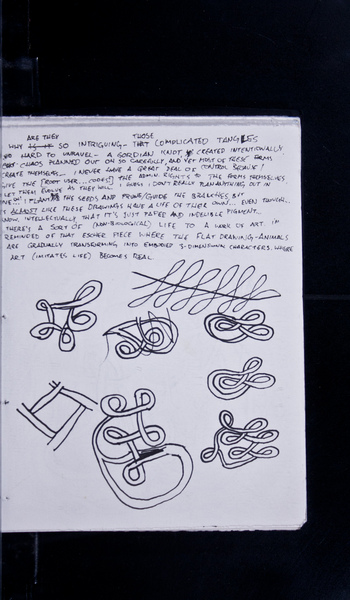 ARE THEY THOSE
WHY IS IT SO INTRIGUING - THAT COMPLICATED TANGLES
SO HARD TO UNRAVEL - A GORDIAN KNOT, CREATED INTENTIONALLY
CHAOS PLANNED OUT ON SO CAREFULLY, AND YET MOST OF THESE FORMS
CREATE THEMSELVES... I NEVER HAVE A GREAT DEAL OF CONTROL REALLY!
GIVE THE [ROOT USER... CODES?] THE ADMIN RIGHTS TO THE FORMS THEMSELVES
LET THEM EVOLVE AS THEY WILL. I GUESS I DON'T REALLY PLAN ANYTHING OUT IN
I PLANT THE SEEDS AND PRUNE/GUIDE THE BRANCHES BIT
ALMOST LIKE THESE DRAWINGS HAVE A LIFE OF THEIR OWN... EVEN THOUGH...
KNOW, INTELLECTUALLY THAT IT'S JUST PAPER AND INDELIBLE PIGMENT...
THERE'S A SORT OF (NON-BIOLOGICAL) LIFE TO A WORK OF ART IN
REMINDED OF THAT ESCHER PIECE WHERE THE FLAT DRAWING-ANIMALS
ARE GRADUALLY TRANSFORMING INTO EMBODIED 3-DIMENTIONAL CHARACTERS. WHERE
ART (IMITATES LIFE) BECOMES REAL.